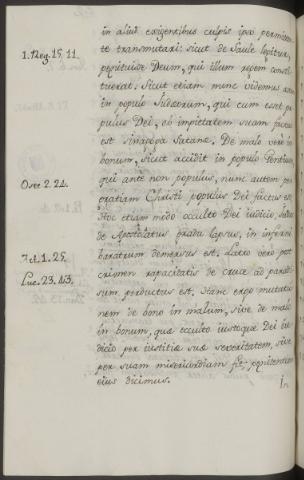 in aliud exigentibus culpis ipso permitten
te transmutari: sicut de Saule legitur,
1. Reg. 15. 11.
pepituisse Deum, qui illum regem consti
tuerat. Sicut etiam nunc videmus
in populo Judæorum, qui cum esset po
pulus Dei, ob impietatem suam factus
est sinagoga Satanæ. De malo vero in
bonum, sicut accidit in populo Gentium
Osee 2. 24.
qui ante non populus, nunc autem per
gratiam Christi populus Dei factus est
Hoc etiam modo occulto Dei judicio,
de Apostolatus gradu lapsus, in inferni
Act. 1. 25.
baratrum demersus est. Latro vero post
Luc. 23. 43.
crimen rapacitatis de cruce ad paradi
sum perductus est. Hanc ergo mutatio
nem de bono in malum, sive de malo
in bonum, quæ occulto justoque Dei ju
dicio per justitiæ suæ severitatem, sive
per suam misericordiam fit, penitentiam
ejus dicimus.
In